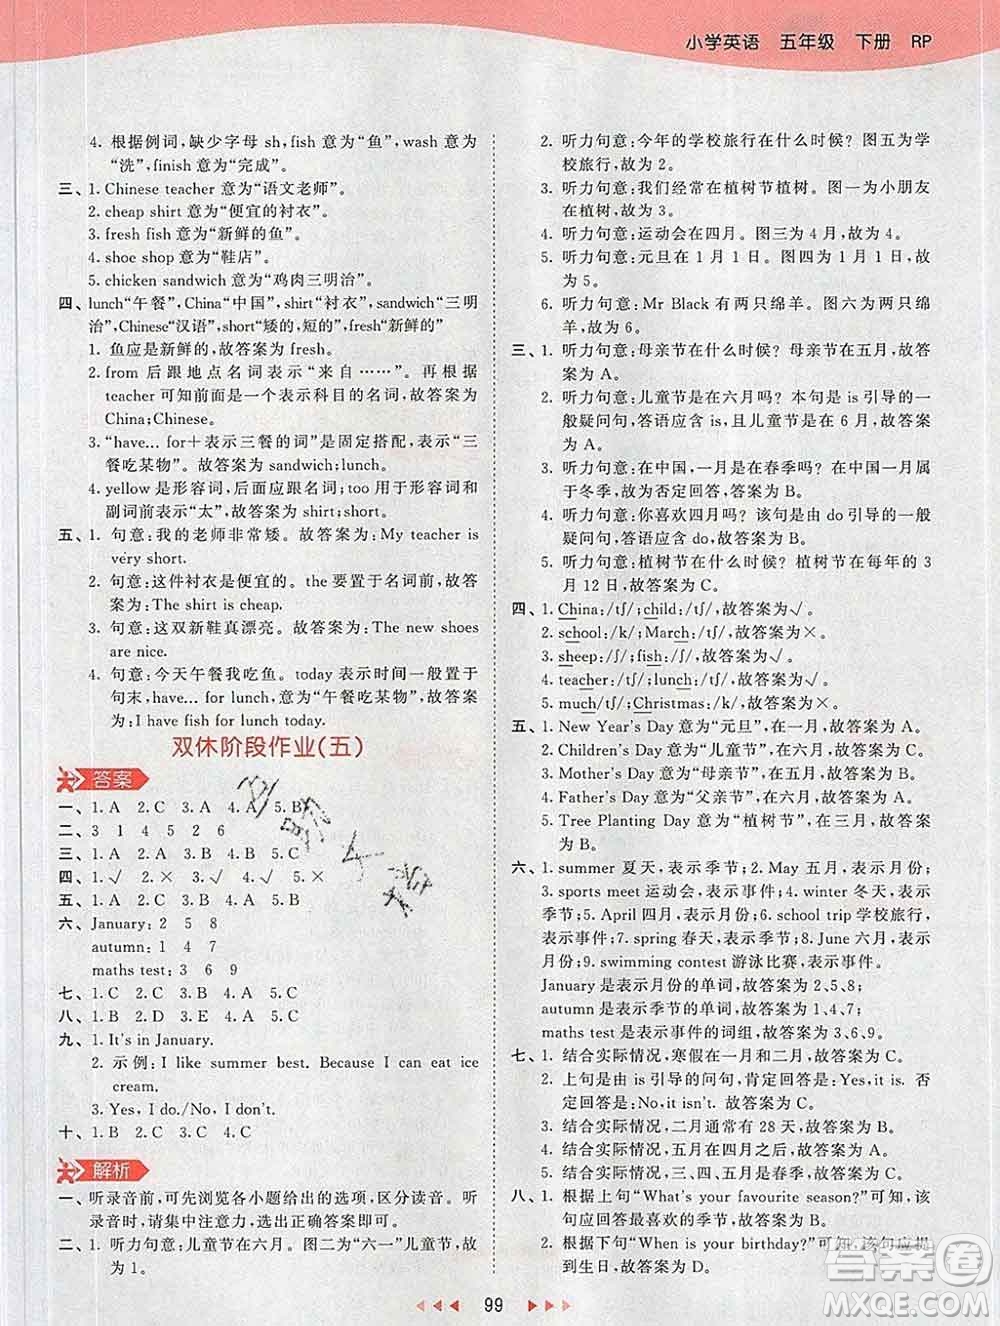 小学英语 五年级 下册 RP
4. 根据例词,缺少字母 sh,fish 意为“鱼”,wash 意为
“洗”,finish 意为“完成”。
三、1. Chinese teacher 意为“语文老师”。
2. cheap shirt 意为“便宜的衬衣”。
3. fresh fish 意为“新鲜的鱼”。
4. shoe shop 意为“鞋店”。
5. chicken sandwich 意为“鸡肉三明治”。
四、lunch“午餐”,China“中国”,shirt“衬衣”,sandwich“三明
治”,Chinese“汉语”,short“矮的,短的”,fresh“新鲜的”
1. 鱼应是新鲜的,故答案为 fresh。
2. from 后跟地点名词表示“来自……”。再根据
teacher 可知前面是一个表示科目的名词,故答案为
China;Chinese。
3. “have... for+表示三餐的词”是固定搭配,表示“三
餐吃某物”。故答案为 sandwich;lunch。
4. yellow 是形容词,后面应跟名词;too 用于形容词和
副词前表示“太”,故答案为 shirt;short。
五、1. 句意:我的老师非常矮。故答案为:My teacher is
very short.
2. 句意:这件衬衣是便宜的。the 要置于名词前,故答
案为:The shirt is cheap.
3. 句意:这双新鞋真漂亮。故答案为:The new shoes
are nice.
4. 句意:今天午餐我吃鱼。today 表示时间一般置于
句末,have... for lunch,意为“午餐吃某物”,故答案
为:I have fish for lunch today.
双休阶段作业(五)
答案
一、1. A 2. C 3. A 4. A 5. B
二、3 1 4 5 2 6
三、1. A 2. A 3. B 4. B 5. C
四、1. √ 2. × 3. √ 4. √ 5. ×
五、1. A 2. C 3. A 4. B 5. B
六、January: 2 5 8
autumn: 1 4 7
maths test: 3 6 9
七、1. C 2. A 3. B 4. A 5. C
八、1. B 2. D 3. E 4. A 5. C
九、1. It's in January.
2. 示例:I like summer best. Because I can eat ice
cream.
3. Yes, I do./No, I don't.
十、1. B 2. A 3. C 4. C
解析
一、听录音前,可先浏览各小题给出的选项,区分读音。听
录音时,请集中注意力,选出正确答案即可。
二、1. 听力句意:儿童节在六月。图二为“六一”儿童节,故
为 1。
2. 听力句意:今年的学校旅行在什么时候?图五为学
校旅行,故为 2。
3. 听力句意:我们经常在植树节植树。图一为小朋友
在植树,故为 3。
4. 听力句意:运动会在四月。图三为运动会,故为 4。
5. 听力句意:元旦在 1 月 1 日。图四为 1 月 1 日,故
为 5。
6. 听力句意:Mr Black 有两只绵羊。图六为两只绵
羊,故为 6。
三、1. 听力句意:母亲节在什么时候?母亲节在五月,故答
案为 A。
2. 听力句意:儿童节是在六月吗?本句是 is 引导的一
般疑问句,答语应含有 is,且儿童节是在六月,故答案
为 A。
3. 听力句意:在中国,一月是在春季吗?在中国,一月
属于冬季,故为否定回答,答案为 B。
4. 听力句意:你喜欢四月吗?该句是由 do 引导的一般
疑问句,答语应含 do,故答案为 B。
5. 听力句意:植树节在什么时候?植树节在每年的 3
月 12 日,故答案为 C。
四、1. China:/tʃ/;child:/tʃ/,故答案为√。
2. school:/k/;March:/tʃ/,故答案为×。
3. sheep:/ʃ/;fish:/ʃ/,故答案为√。
4. teacher:/tʃ/;lunch:/tʃ/,故答案为√。
5. much/tʃ/;Christmas:/k/,故答案为×。
五、1. New Year's Day 意为“元旦”,在一月,故答案为 A。
2. Children's Day 意为“儿童节”,在六月,故答案为 C。
3. Mother's Day 意为“母亲节”,在五月,故答案为 A。
4. Father's Day 意为“父亲节”,在六月,故答案为 B。
5. Tree Planting Day 意为“植树节”,在三月,故答案
为 B。
六、1. summer 夏天,表示季节;2. May 五月,表示月份;
3. sports meet 运动会,表示事件;4. winter 冬天,表示
季节;5. April 四月,表示月份;6. school trip 学校旅行,
表示事件;7. spring 春天,表示季节;8. June 六月,表示
月份;9. swimming contest 游泳比赛,表示事件。
January 是表示月份的单词,故答案为 2、5、8;
autumn 是表示季节的单词,故答案为 1、4、7;
maths test 是表示事件的词组,故答案为 3、6、9。
七、1. 结合实际情况,寒假在一月和二月,故答案为 C。
2. 上句是由 is 引导的问句,肯定回答是:Yes,it is. 否
定回答是:No,it isn't. 故答案为 A。
3. 结合实际情况,二月通常有 28 天,故答案为 B。
4. 结合实际情况,五月在四月之后,故答案为 A。
5. 结合实际情况,三、四、五月是春季,故答案为 C。
八、1. 根据上句“What's your favourite season?”可知,该
句应回答最喜欢的季节,故答案为 B。
2. 根据下句“When is your birthday?”可知,该句应提
到生日,故答案为 D。
99
答案圈
MXQE.COM